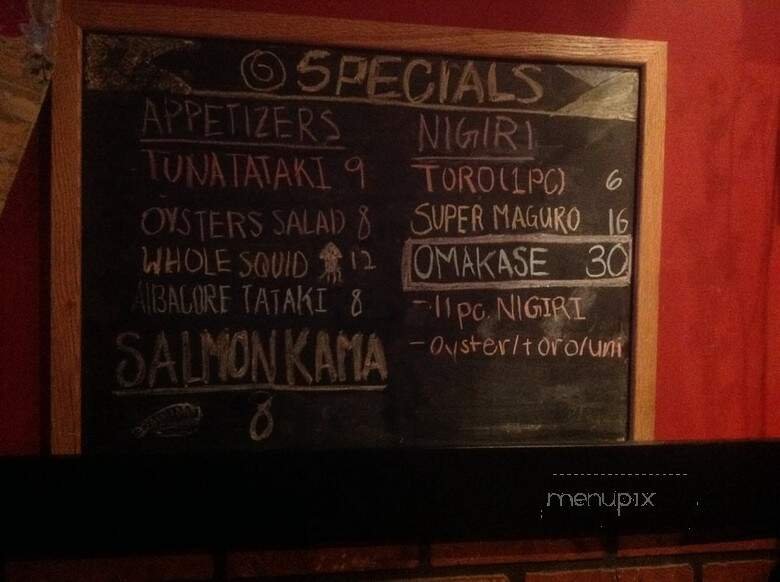 SPECIALS
APPETIZERS
TUNA TATAKI 9
OYSTERS SALAD 8
WHOLE SQUID 12
AlBACORE TATAKI 8
SALMON KAMA
8
NIGIRI
TORO (1PC) 6
SUPER MAGURO 16
OMAKASE 30
- 11 pc. NIGIRI
- oyster/toro/uni
menupix